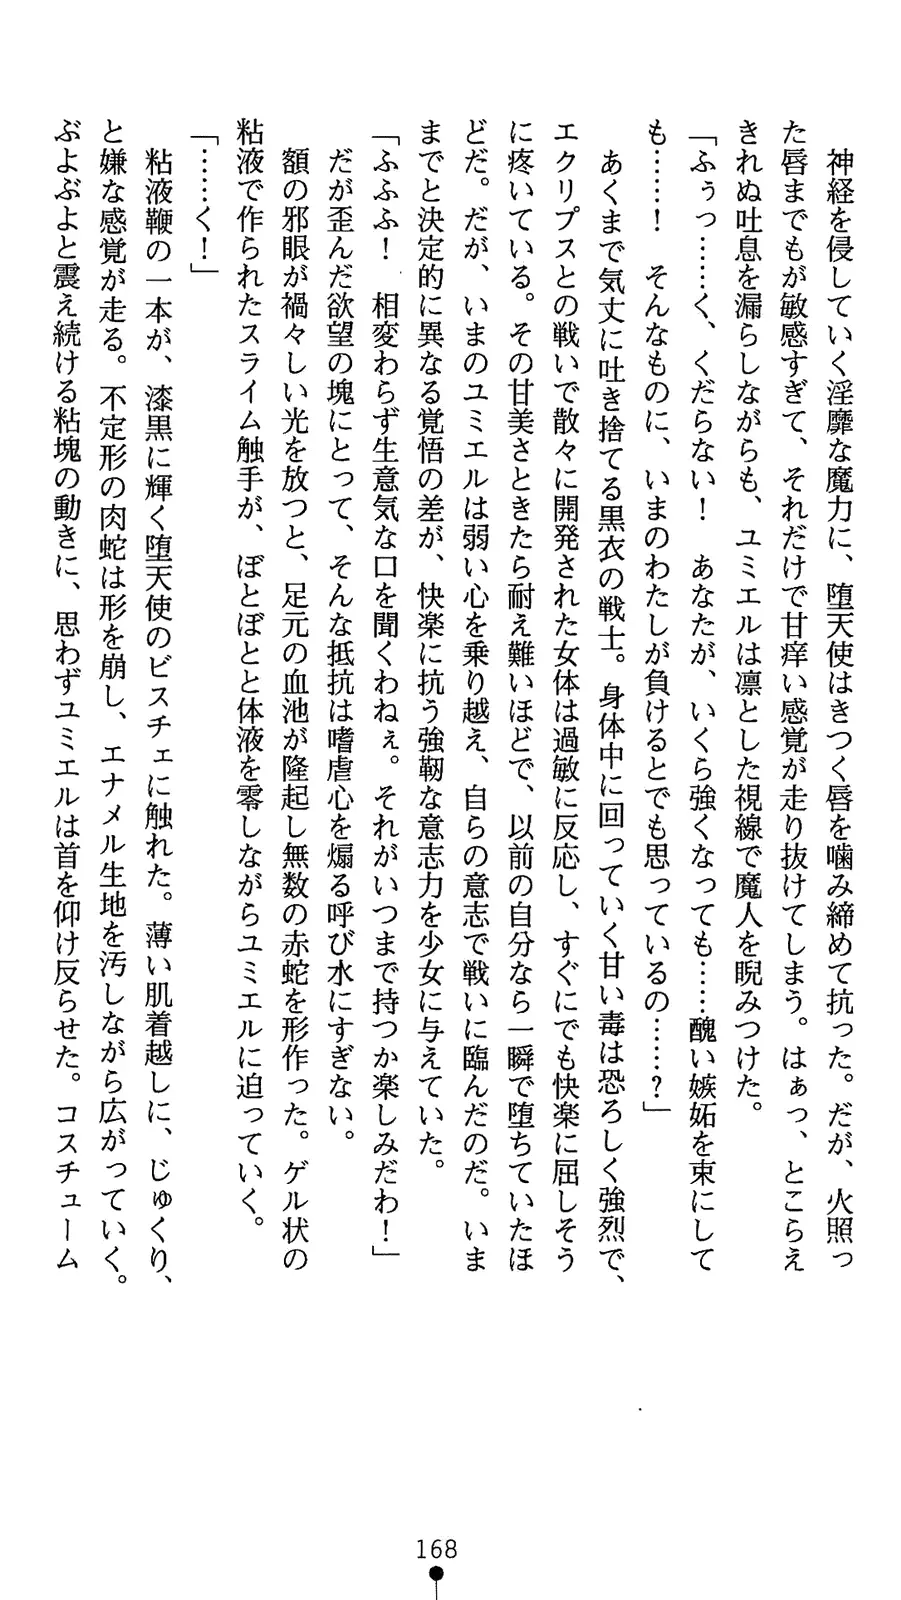 神経を侵していく淫靡な魔力に、堕天使はきつく唇を噛み締めて抗った。だが、火照っ
た唇までもが敏感すぎて、それだけで甘痒い感覚が走り抜けてしまう。はぁっ、とこらえ
きれぬ吐息を漏らしながらも、ユミエルは凛とした視線で魔人を睨みつけた。
「ふぅっ……く、くだらない！　あなたが、いくら強くなっても……醜い嫉妬を束にして
も……！　そんなものに、いまのわたしが負けるとでも思っているの……？」
あくまで気丈に吐き捨てる黒衣の戦士。身体中に回っていく甘い毒は恐ろしく強烈で、
エクリプスとの戦いで散々に開発された女体は過敏に反応し、すぐにでも快楽に屈しそう
に疼いている。その甘美さときたら耐え難いほどで、以前の自分なら一瞬で堕ちていたほ
どだ。だが、いまのユミエルは弱い心を乗り越え、自らの意志で戦いに臨んだのだ。いま
までと決定的に異なる覚悟の差が、快楽に抗う強靭な意志力を少女に与えていた。
「ふふふ！　相変わらず生意気な口を聞くわねぇ。それがいつまで持つか楽しみだわ！」
だが歪んだ欲望の塊にとって、そんな抵抗は嗜虐心を煽る呼び水にすぎない。
額の邪眼が禍々しい光を放つと、足元の血池が隆起し無数の赤蛇を形作った。ゲル状の
粘液で作られたスライム触手が、ぼとぼとと体液を零しながらユミエルに迫っていく。
「……く！」
粘液鞭の一本が、漆黒に輝く堕天使のビスチェに触れた。薄い肌着越しに、じゅくり、
と嫌な感覚が走る。不定形の肉蛇は形を崩し、エナメル生地を汚しながら広がっていく。
ぶよぶよと震え続ける粘塊の動きに、思わずユミエルは首を仰け反らせた。コスチューム
168